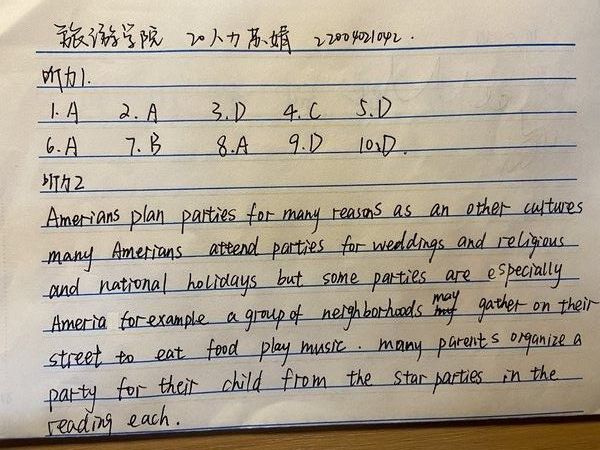 旅游学院 20人力苏娟 22004021042.
听力1.
1.A 2.A 3.D 4.C 5.D
6.A 7.B 8.A 9.D 10.D.
听力2
Amerians plan parties for many reasons as an other cultures
many Amerians attend parties for weddings and religious
and national holidays but some parties are especially
Ameria for example a group of neighborhoods may gather on their
street to eat food play music. many parents organize a
party for their child from the star parties in the
reading each.